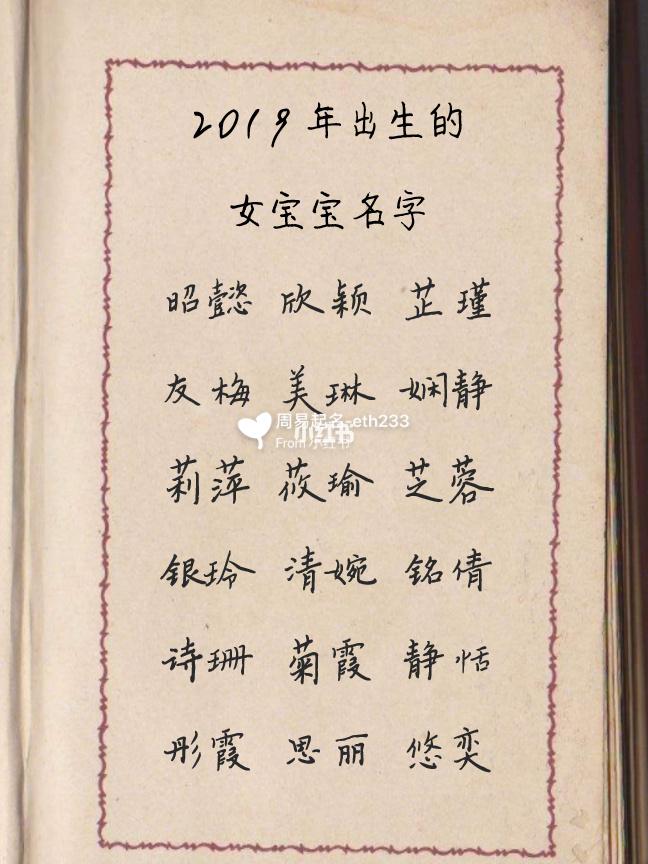 2019年出生的
女宝宝名字
昭懿 欣颖 芷瑾
友梅 美琳 娴静
周易起名-eth233
小红书
From 小红书
莉萍 莜瑜 芝蓉
银玲 清婉 铭倩
诗珊 菊霞 静恬
彤霞 思丽 悠奕